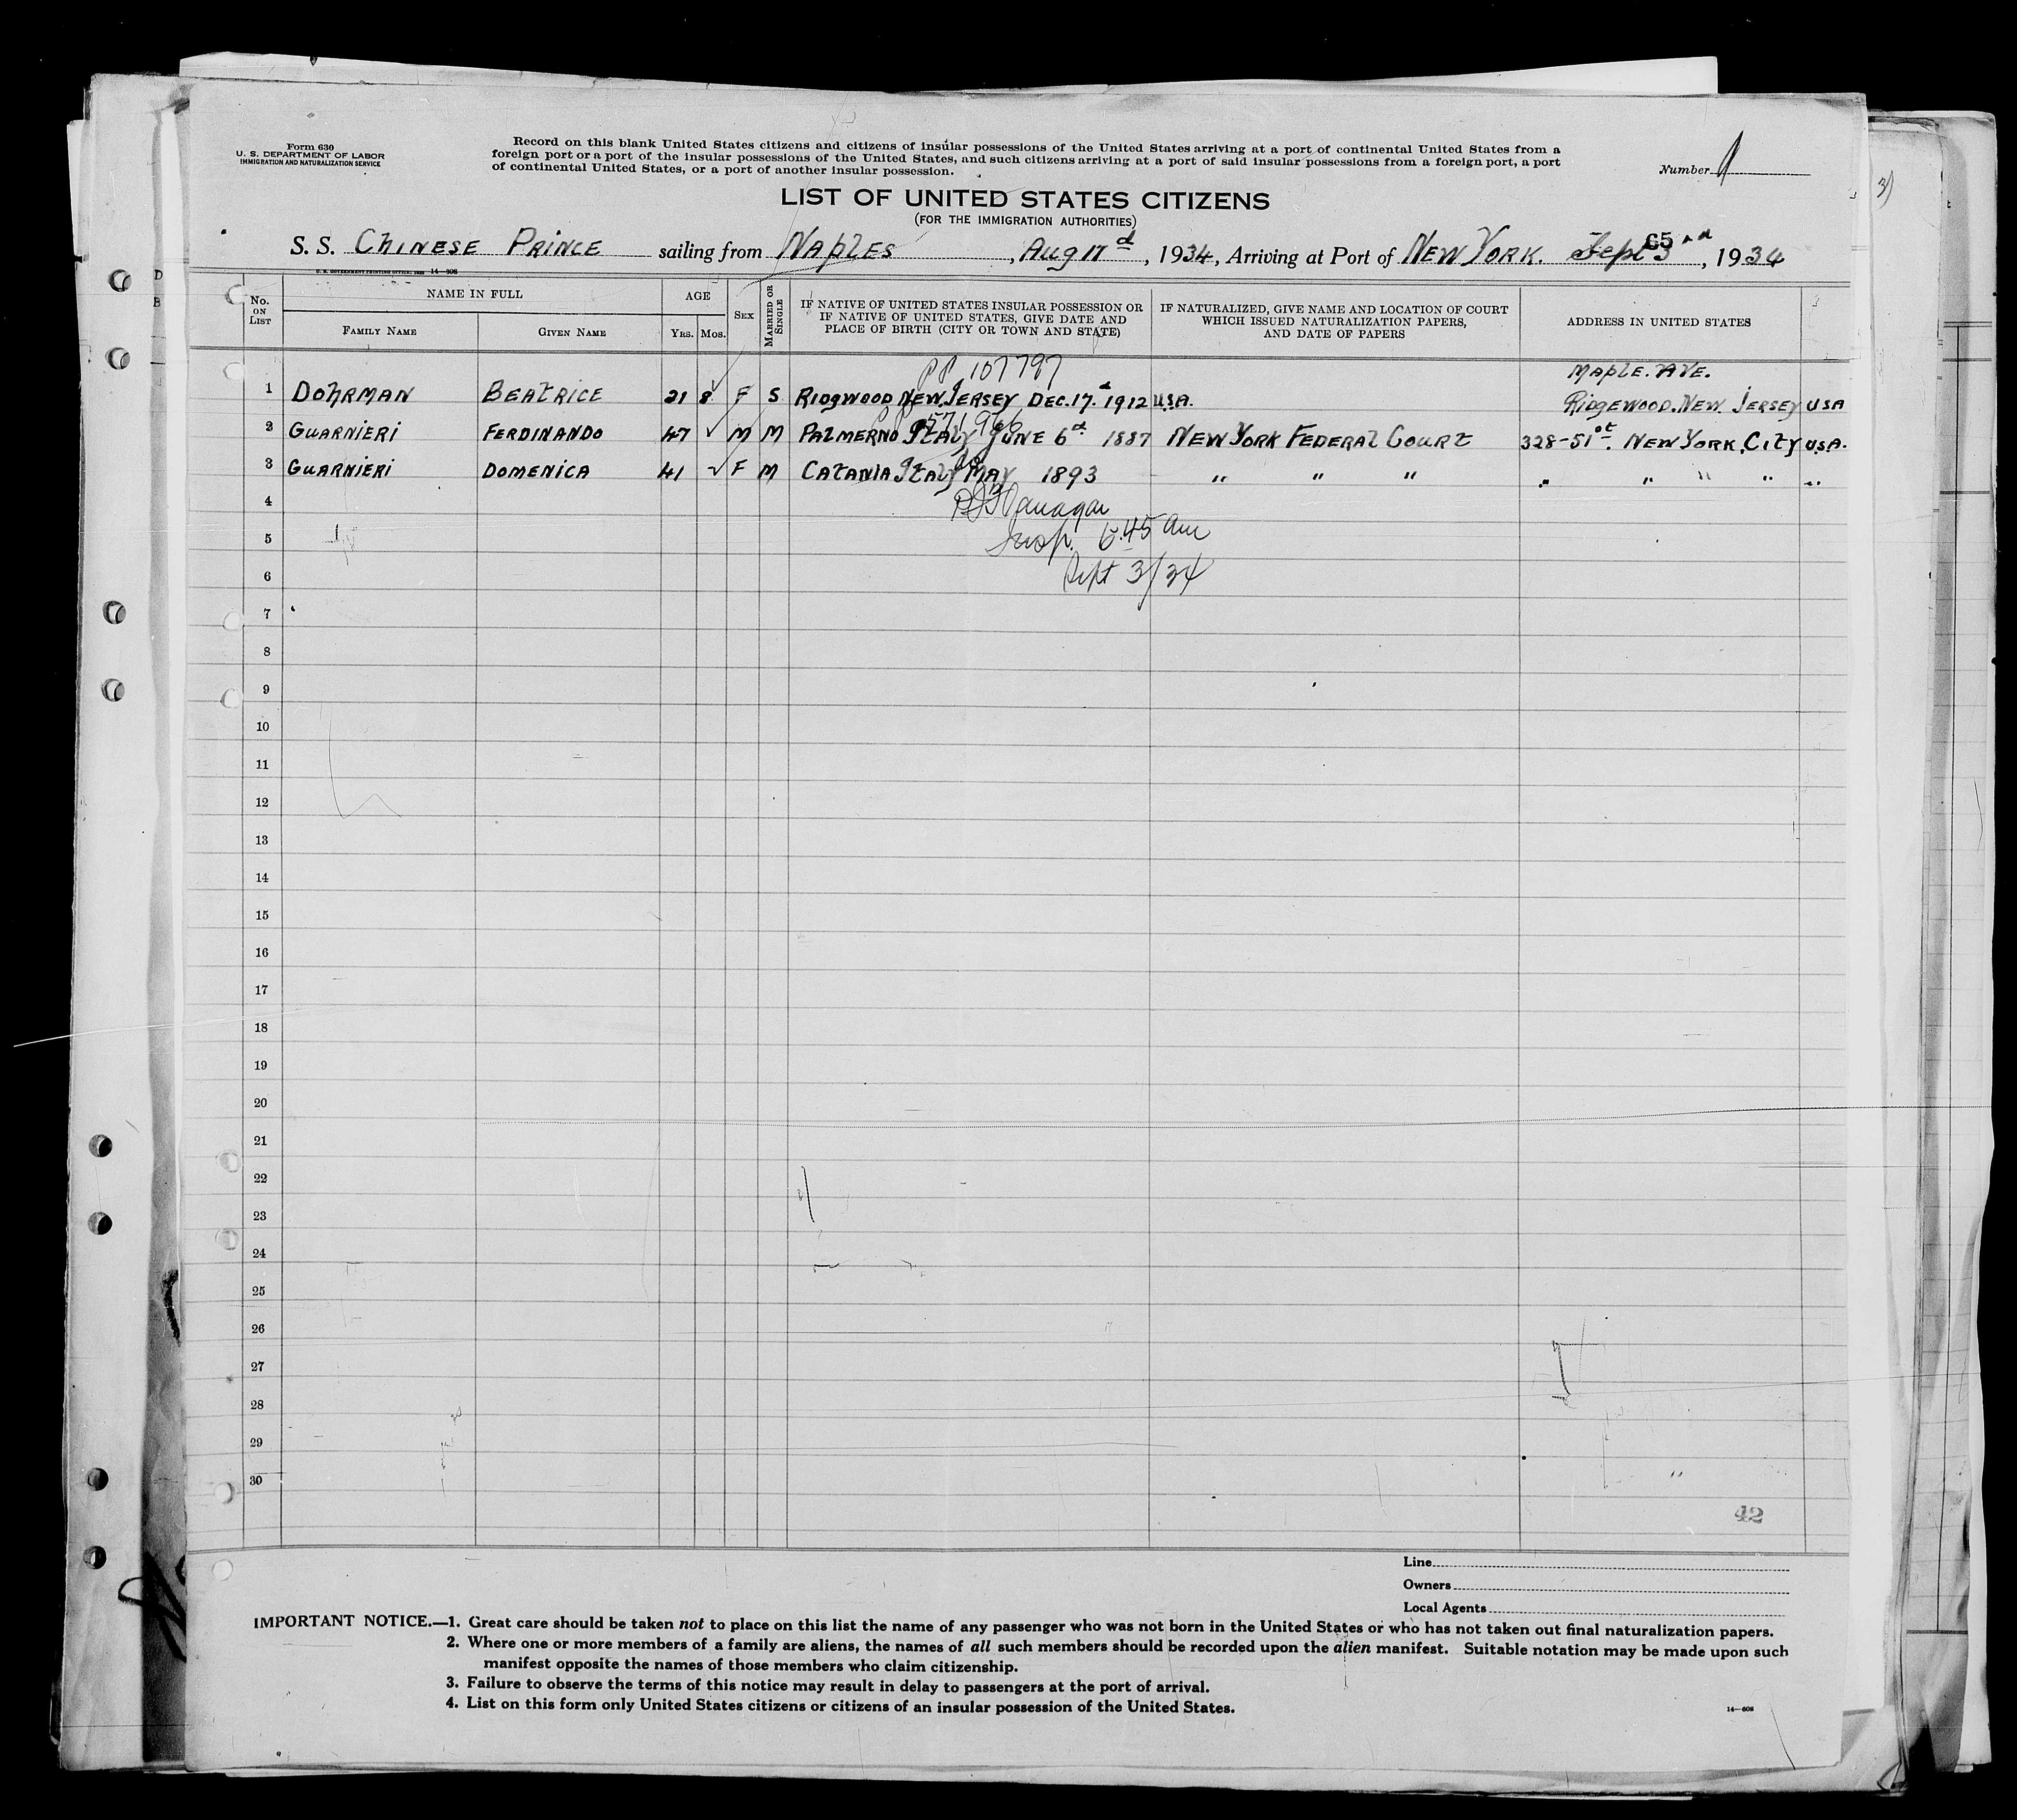 Form 630
U. S. DEPARTMENT OF LABOR
IMMIGRATION AND NATURALIZATION SERVICE
Record on this blank United States citizens and citizens of insular possessions of the United States arriving at a port of continental United States from a
foreign port or a port of the insular possessions of the United States, and such citizens arriving at a port of said insular possessions from a foreign port, a port
of continental United States, or a port of another insular possession.
Number 1
LIST OF UNITED STATES CITIZENS
(FOR THE IMMIGRATION AUTHORITIES)
65
S. S. CHINESE PRINCE sailing from NAPLES, AUG 17 d, 1934, Arriving at Port of NEW YORK. Sept 3 rd, 1934
U. S. GOVERNMENT PRINTING OFFICE: 14—608
No. ON LIST
NAME IN FULL
FAMILY NAME
GIVEN NAME
AGE
YRS.
MOS.
SEX
MARRIED OR SINGLE
IF NATIVE OF UNITED STATES INSULAR POSSESSION OR
IF NATIVE OF UNITED STATES, GIVE DATE AND
PLACE OF BIRTH (CITY OR TOWN AND STATE)
IF NATURALIZED, GIVE NAME AND LOCATION OF COURT
WHICH ISSUED NATURALIZATION PAPERS,
AND DATE OF PAPERS
ADDRESS IN UNITED STATES
PP. 107797
MAPLE. AVE.
1 DOHRMAN BEATRICE 21 8 F S RIDGWOOD NEW. JERSEY DEC. 17. 1912 U.S.A. RIDGEWOOD. NEW JERSEY USA
PP 571966
2 GUARNIERI FERDINANDO 47 ✓ M M PALMERNO ITALY JUNE 6 1887 NEW YORK FEDERAL COURT 328-51 st. NEW YORK. CITY U.S.A.
3 GUARNIERI DOMENICA 41 ✓ F M CATANIA ITALY MAY 1893 " " " " " " " "
4
5 Insp. 6.45 am
6 Sept 3/34
7
8
9
10
11
12
13
14
15
16
17
18
19
20
21
22
23
24
25
26
27
28
29
30
42
Line
Owners
Local Agents
IMPORTANT NOTICE.—1. Great care should be taken not to place on this list the name of any passenger who was not born in the United States or who has not taken out final naturalization papers.
2. Where one or more members of a family are aliens, the names of all such members should be recorded upon the alien manifest. Suitable notation may be made upon such
manifest opposite the names of those members who claim citizenship.
3. Failure to observe the terms of this notice may result in delay to passengers at the port of arrival.
4. List on this form only United States citizens or citizens of an insular possession of the United States.
14—608